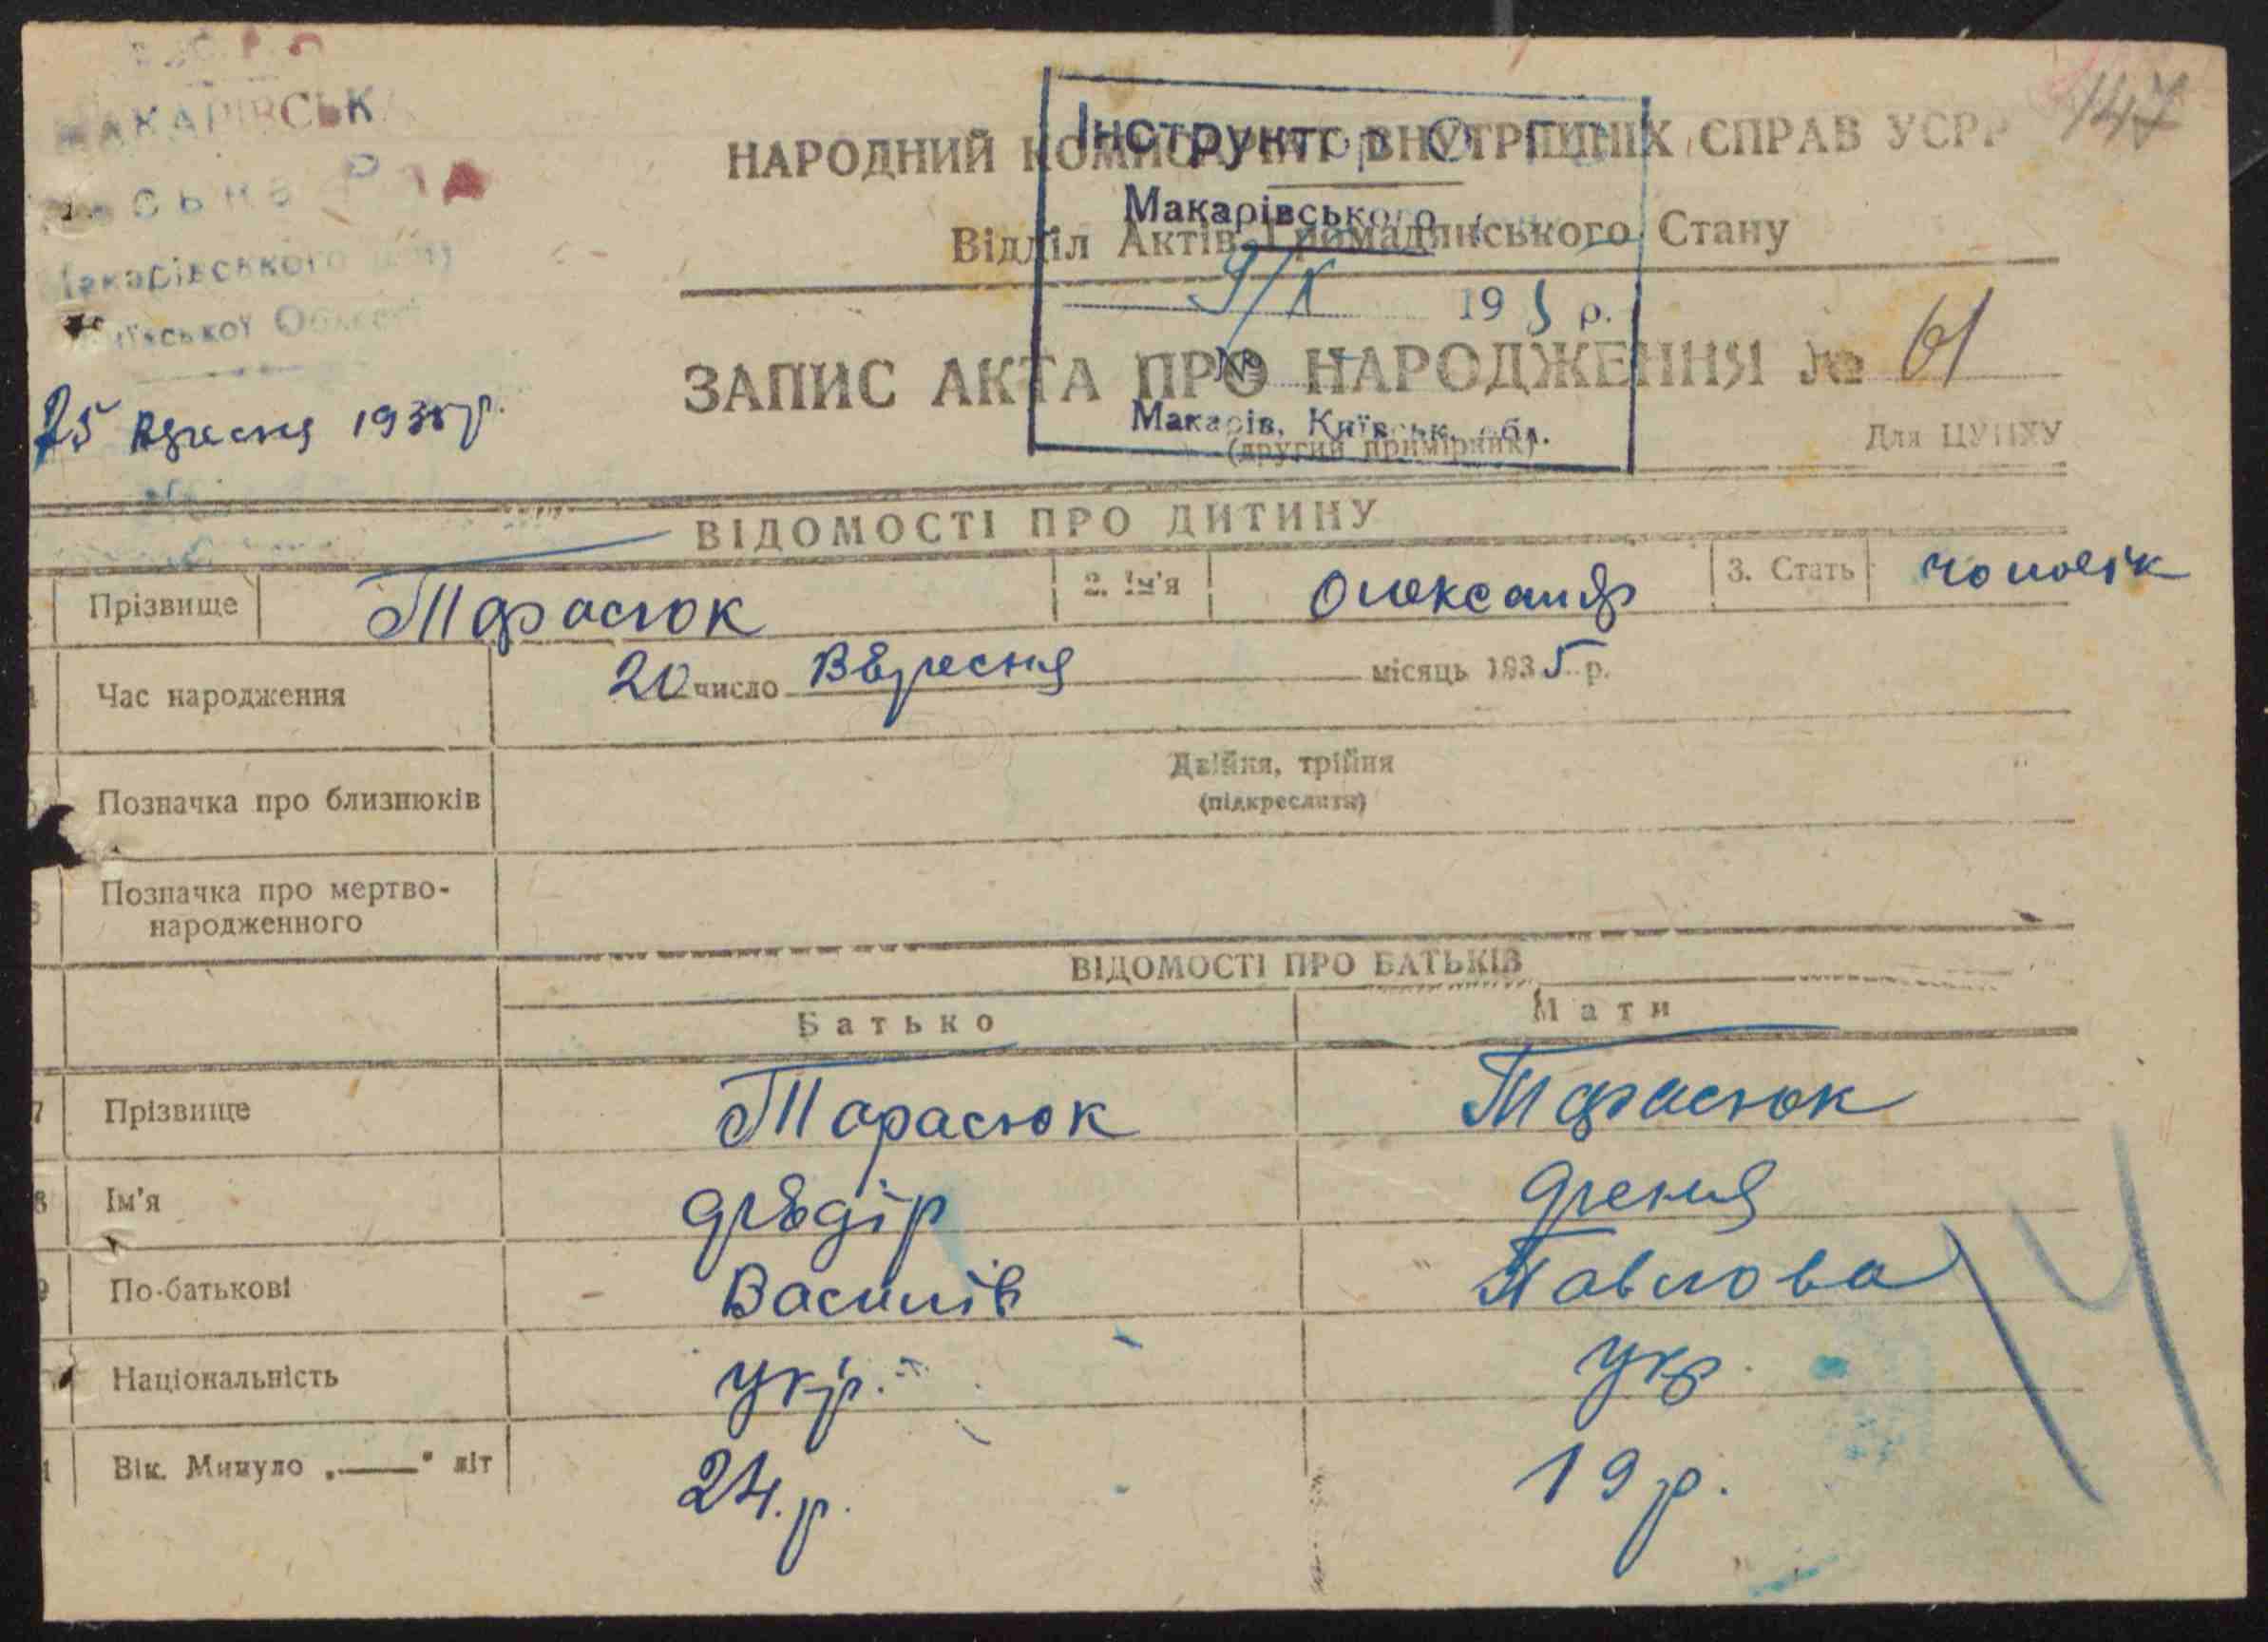 147
МАКАРІВСЬКА
Макарівського
Київської Області
25 Вересня 1935 р.
НАРОДНИЙ КОМІСАРІАТ ВНУТРІШНІХ СПРАВ УСРР
Відділ Актів Громадянського Стану
Інструктор
Макарівського
9/X 1935 р.
№
Макарів, Київськ. обл.
ЗАПИС АКТА ПРО НАРОДЖЕННЯ № 61
(другий примірник)
Для ЦУНХУ
ВІДОМОСТІ ПРО ДИТИНУ
Прізвище Тарасюк 2. Ім'я Олександр 3. Стать чоловік
Час народження 20 число Вересня місяць 1935 р.
Позначка про близнюків Двійня, трійня
(підкреслити)
Позначка про мертво-
народженного
ВІДОМОСТІ ПРО БАТЬКІВ
Батько Мати
7 Прізвище Тарасюк Тарасюк
8 Ім'я Федір
9 По-батькові Василів Павлова
Національність укр. укр.
Вік. Минуло „——" літ 24.р. 19 р.